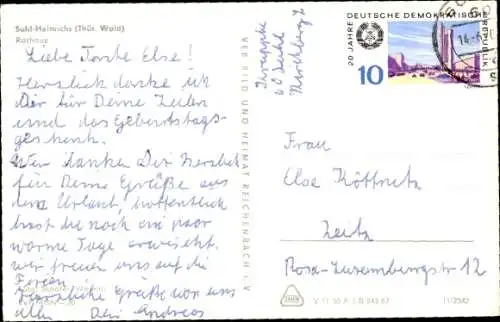 Suhl-Heinrichs (Thür. Wald)
Rathaus
Liebe Tante Else!
Herzlich danke ich
Dir für Deine Zeilen
und das Geburtstags-
geschenk.
Wir danken Dir herzlich
für Deine Grüße aus
dem Urlaub, hoffentlich
hast die noch ein paar
warme Tage erwischt.
wir freuen uns auf die
Ferien
Herzliche Grüße von uns
allen Dein Andreas
VEB BILD UND HEIMAT REICHENBACH i. V.
60 Suhl
20 JAHRE DEUTSCHE DEMOKRATISCHE REPUBLIK
10
60
Frau
Else Köttnitz
Zeitz
Rosa-Luxemburgstr 12